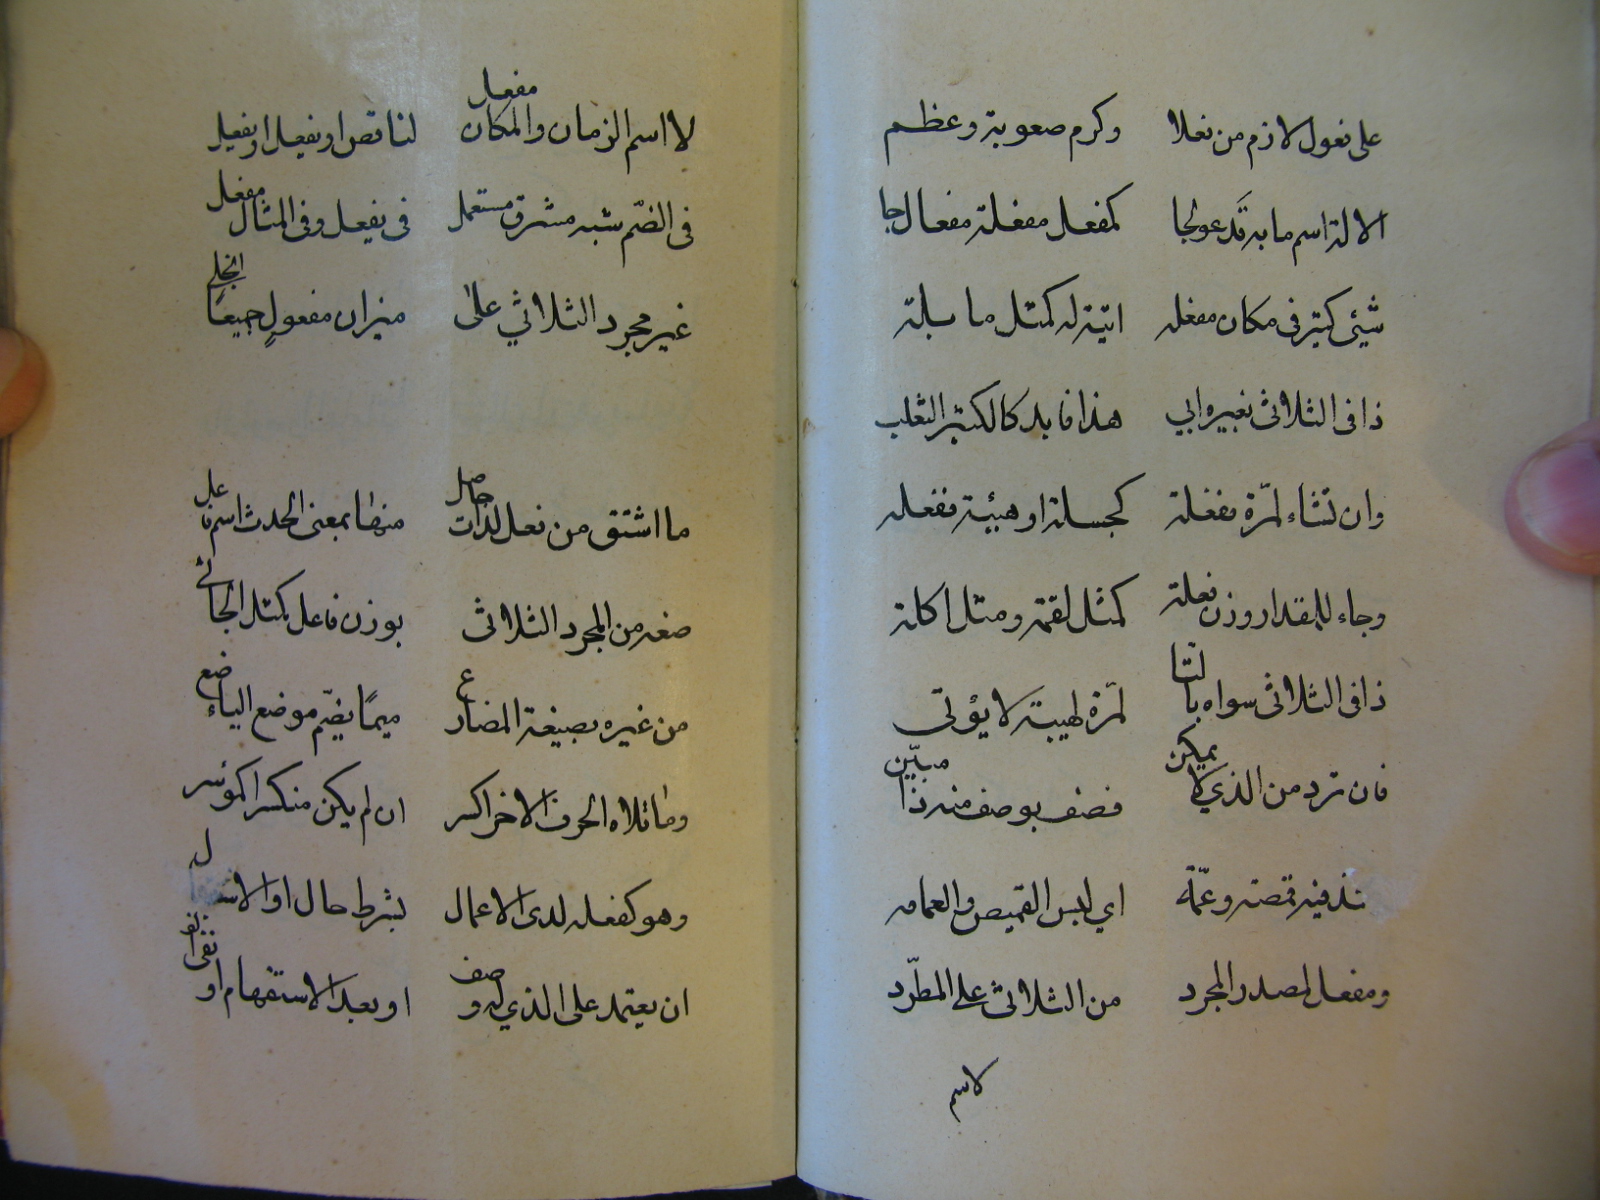 على فعول لازم من فعلا وكرم صعوبة وعظم
الالة اسم ما به تدعو لجا كمفعل مفعلة مفعال جا
شيئ كثير في مكان مفعله اتية له كمثل ما سلة
ذا في الثلاثى بغيره ابي هذا فابد كالكثير الثعلب
وان تشاء لمرّة ففعلة كجسلة او هيئة ففعله
وجاء للمقدار وزن فعلة كمثل لقمة ومثل اكلة
ذا في الثلاثى سواه بالتا لمرّة لهيبة لا يؤتى
فان ترد من الذي لا يمكن فصف بوصف منه ذا مبيّن
فيه قمصة وعمّة اي لبس القميص والعمامه
ومفعل لمصدر المجرد من الثلاثى على المطرّد
لاسم
لا اسم الزمان والمكان مفعل لناقص او يفعل او يفعل
في الضّم شبه مشرق مستعمل في يفعل وفى المثال مفعل
غير مجرد الثلاثي على ميزان مفعولٍ جميعًا انجلى
ما اشتق من فعل لذات حاصل منها بمعنى الحدث اسم فاعل
صغه من المجرد الثلاثى بوزن فاعل كمثل الجاثى
من غيره بصيغة المضارع ميمًا يضّم موضع الياء ضع
وما تلاه الحرف الاخر اكسر ان لم يكن منكسرا
وهو كفعله لدى الاعمال بشرط حال او
ان يعتمد على الذي له وصف او بعد الاستفهام او نفى